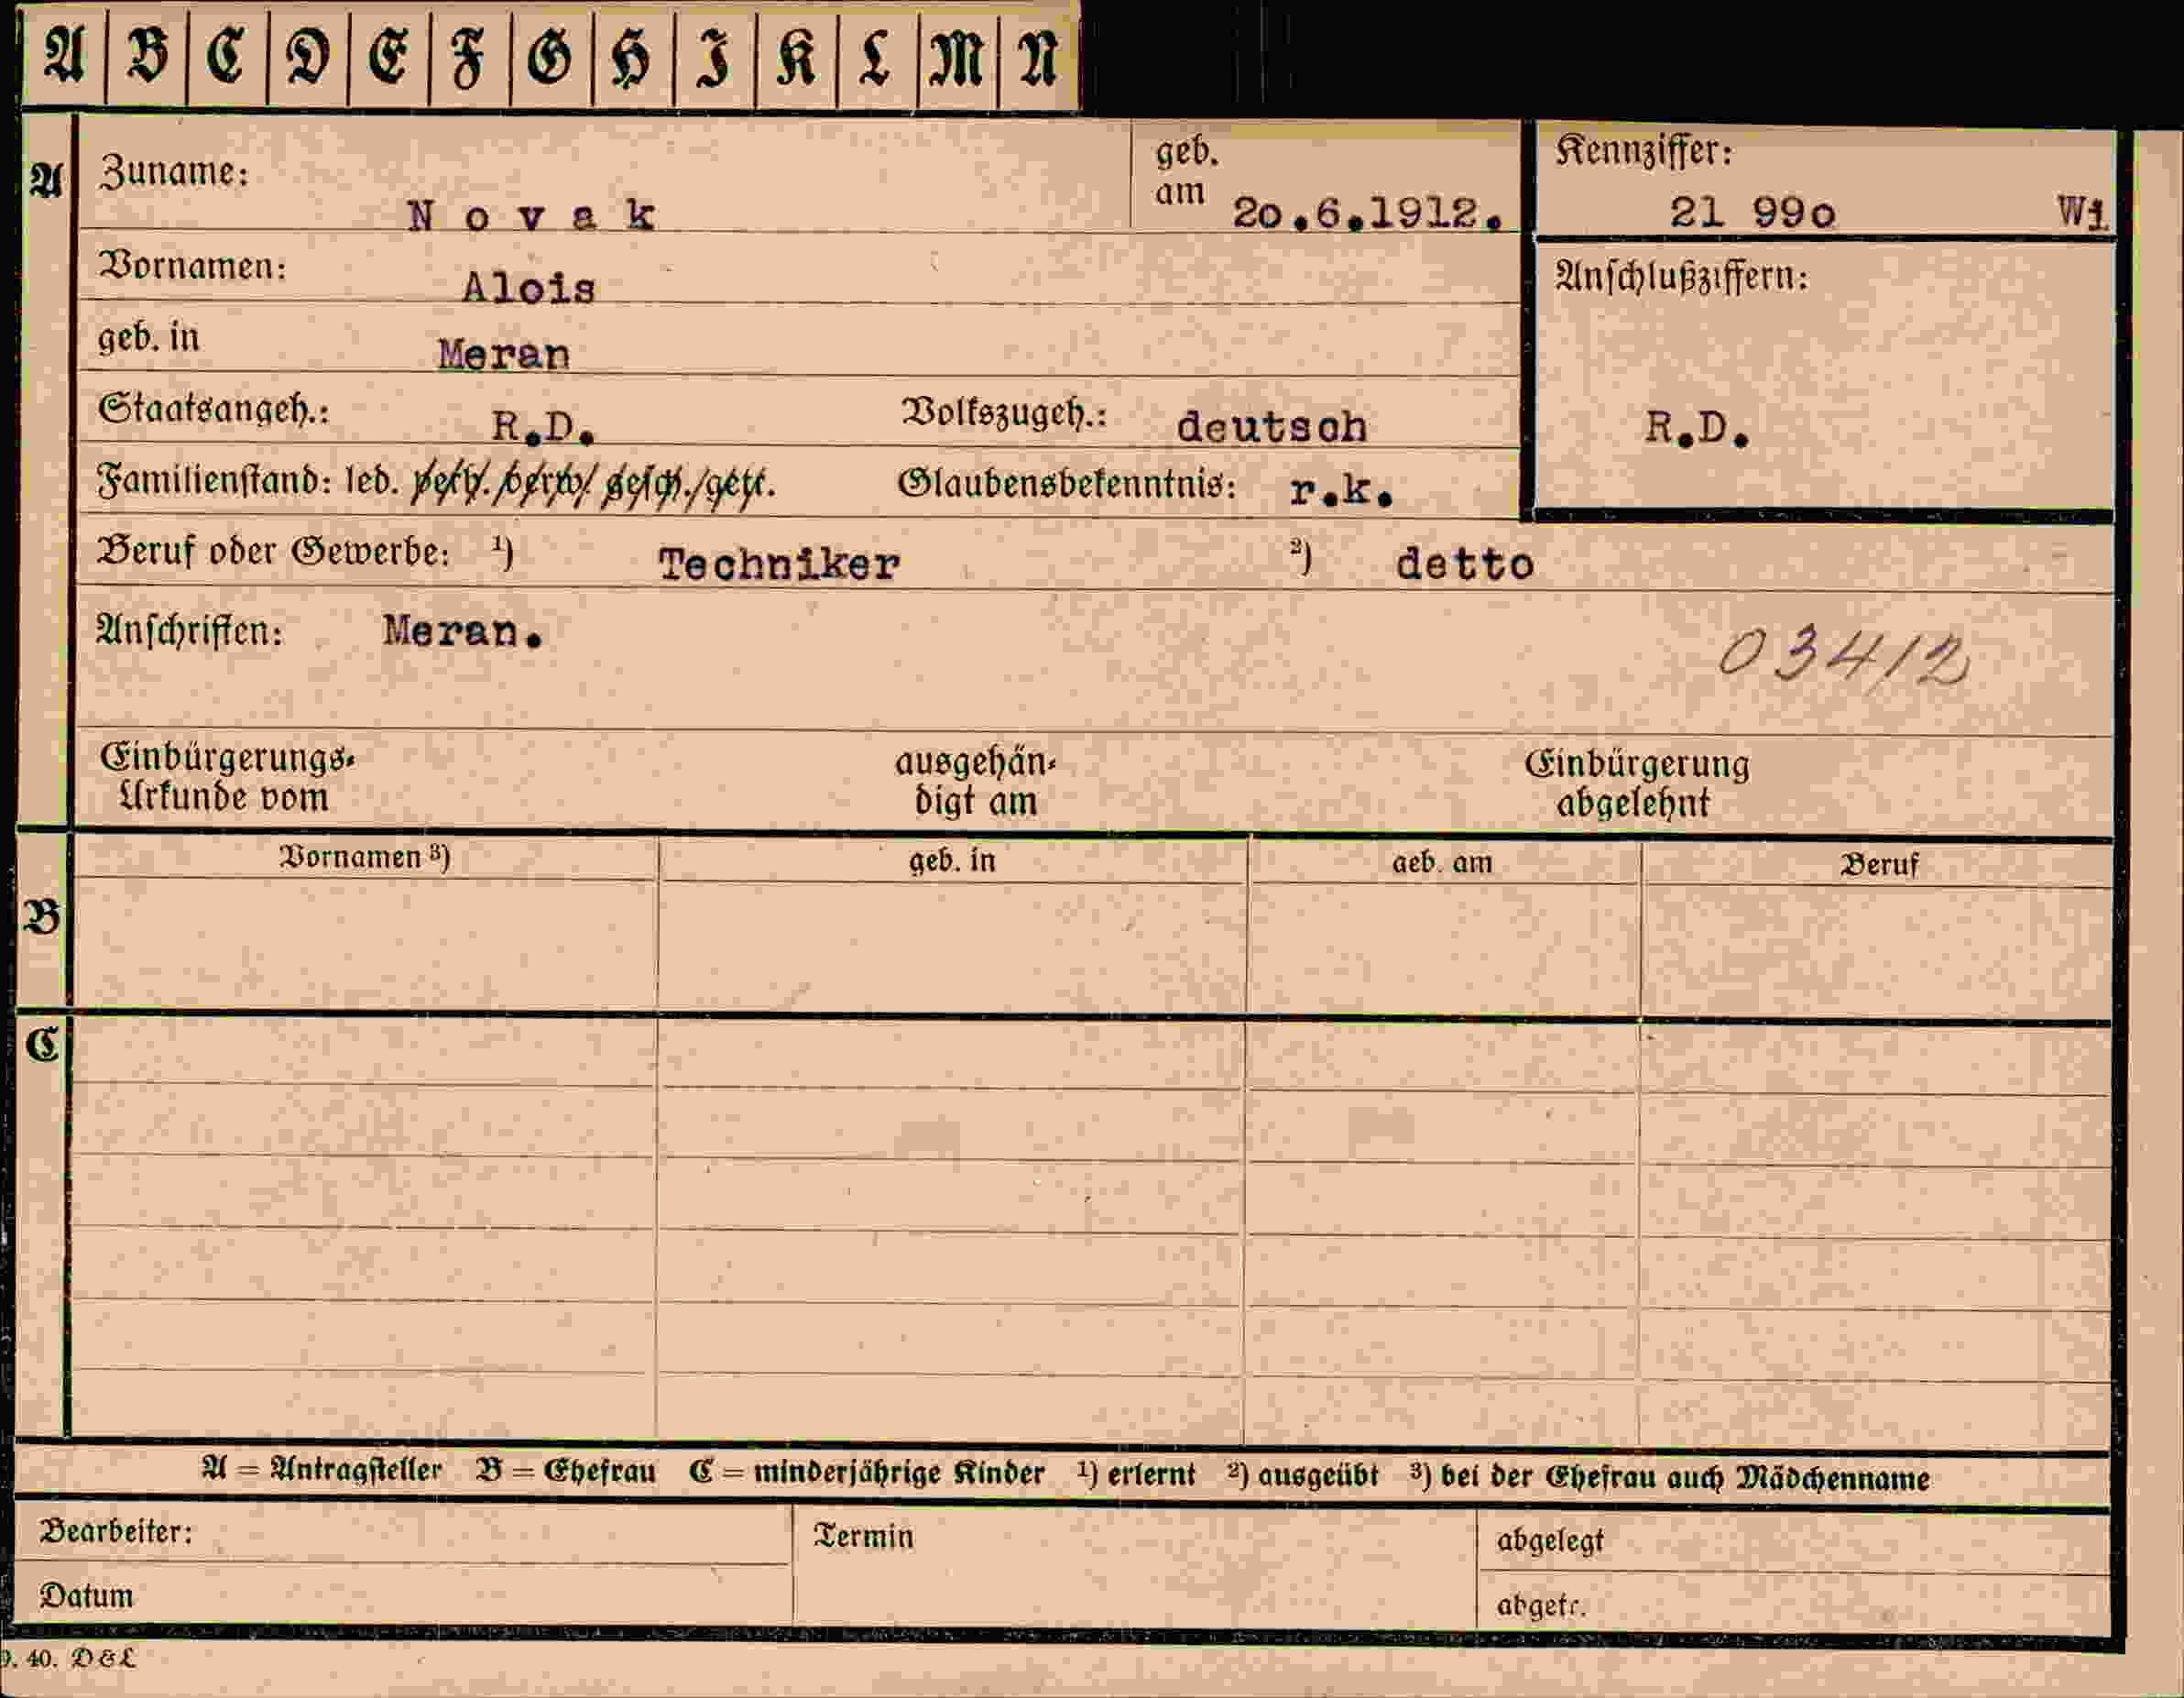 A B C D E F G H I K L M N
A Zuname: N o v a k geb. am 2o.6.1912. Kennziffer: 21 99o Wi
Vornamen: Alois Anschlußziffern:
geb. in Meran
Staatsangeh.: R.D. Volkszugeh.: deutsch R.D.
Familienstand: led. verh. verw. gesch. getr. Glaubensbekenntnis: r.k.
Beruf oder Gewerbe: ¹) Techniker ²) detto
Anschriften: Meran. 03412
Einbürgerungs- ausgehän- Einbürgerung
Urkunde vom digt am abgelehnt
Vornamen ³) geb. in geb. am Beruf
B
C
A = Antragsteller B = Ehefrau C = minderjährige Kinder ¹) erlernt ²) ausgeübt ³) bei der Ehefrau auch Mädchenname
Bearbeiter: Termin abgelegt
Datum abgetr.
9. 40. D & L